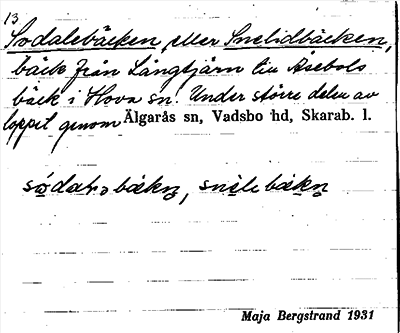 13
Södalebäcken eller Snelidbäcken,
bäck från Långtjärn till Åsebols
bäck i Hova sn. Under större delen av
loppet genom Älgarås sn, Vadsbo hd, Skarab. l.
snìlebækn̥
Maja Bergstrand 1931